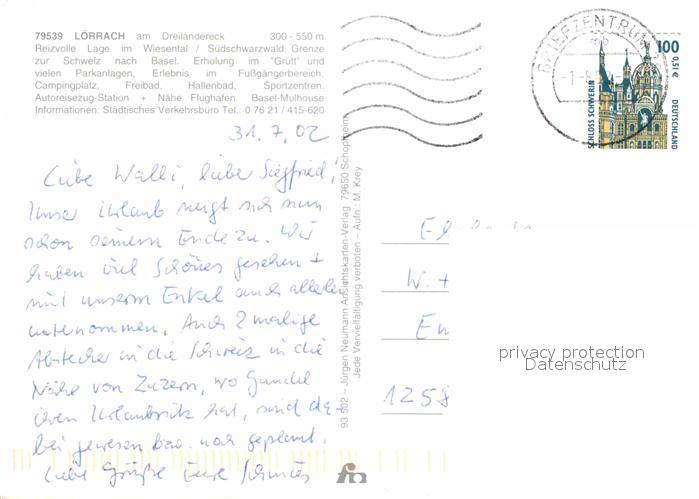 79539 LÖRRACH am Dreiländereck 300 - 550 m
Reizvolle Lage im Wiesental / Südschwarzwald, Grenze
zur Schweiz nach Basel. Erholung im "Grütt" und
vielen Parkanlagen, Erlebnis im Fußgängerbereich,
Campingplatz, Freibad, Hallenbad, Sportzentren.
Autoreisezug-Station + Nähe Flughafen Basel-Mulhouse
Informationen: Städtisches Verkehrsbüro Tel.: 0 76 21 / 415-620
31.7.02
Liebe Walli, lieber Siegfried,
Unser Urlaub neigt sich nun
schon seinem Ende zu. Wir
haben viel Schönes gesehen +
mit unserm Enkel auch allerlei
unternommen. Auch 2 malige
Abstecher in die Schweiz in die
Nähe von Luzern, wo Gundel
ihren Urlaubssitz hat, sind da-
bei gewesen bzw. noch geplant.
Liebe Grüße Eure
93 502 – Jürgen Neumann Ansichtskarten-Verlag 79650 Schopfheim
Jede Vervielfältigung verboten - Aufn.: M. Krey
BRIEFZENTRUM
mb
-1.-8.
100
0,51 €
SCHLOSS SCHWERIN
DEUTSCHLAND
W. +
En
1258
privacy protection
Datenschutz